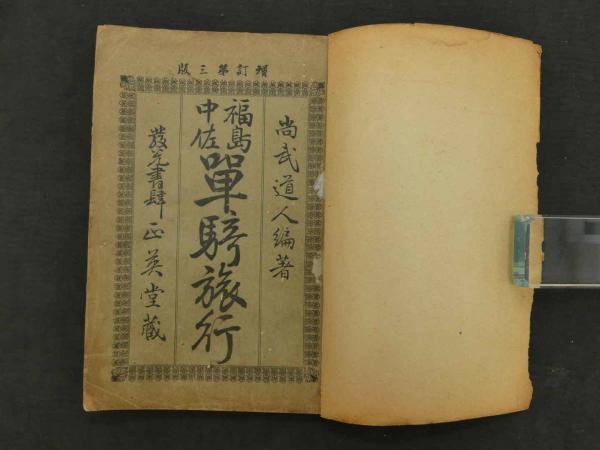 増訂第三版
尚武道人編著
福島
中佐
單騎旅行
發兌書肆 正英堂藏